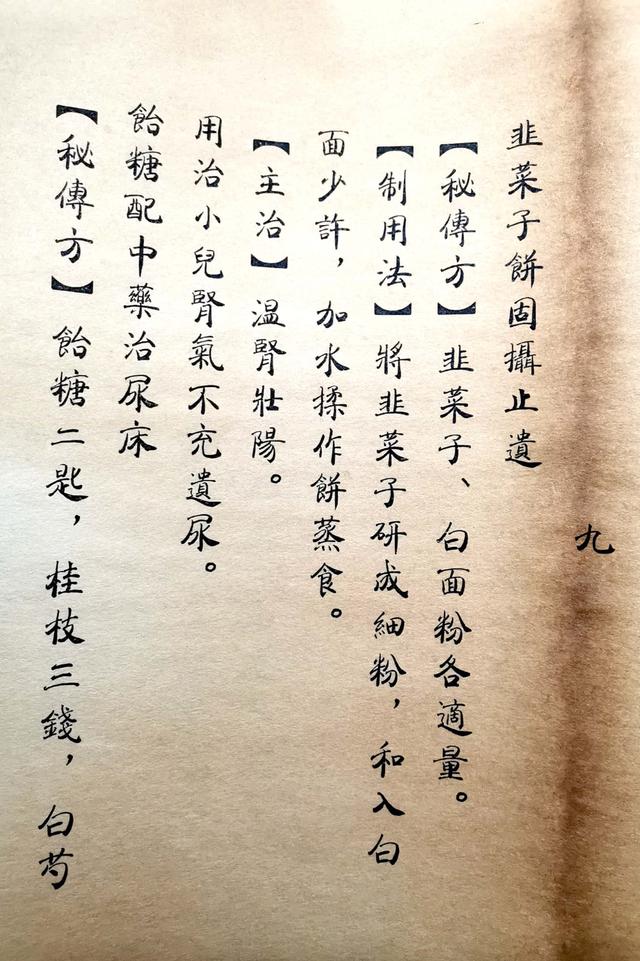 九
韭菜子餅固攝止遺
【秘傳方】韭菜子、白面粉各適量。
【制用法】將韭菜子研成細粉，和入白
面少許，加水揉作餅蒸食。
【主治】温腎壯陽。
用治小兒腎氣不充遺尿。
飴糖配中藥治尿床
【秘傳方】飴糖二匙，桂枝三錢，白芍